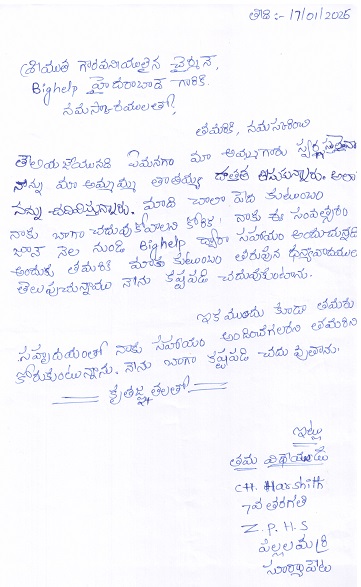 తేది:- 17/01/2026
శ్రీయుత గౌరవనీయులైన చైర్మన్,
Bighelp హైదరాబాద్ గారికి
నమస్కారములతో,
తమరికి, నమస్కరించి
తెలియజేయునది ఏమనగా మా అమ్మగారు
నన్ను మా అమ్మమ్మ తాతయ్య చూస్తున్నారు. అలా
నన్ను చదివిస్తున్నారు. మాది చాలా పేద కుటుంబం
నాకు బాగా చదువుకోవాలని కోరిక. నాకు ఈ సంవత్సరం
జూన్ నెల నుండి Bighelp ద్వారా సహాయం అందుచున్నది
అందుకు తమరికి మాకు కుటుంబం తరుపున ధన్యవాదములు
తెలుపుచున్నాము నేను కష్టపడి చదువుకుంటాను.
ఇక ముందు కూడా తమరు
సహృదయంతో నాకు సహాయం అందించగలరని తమరిని
కోరుకుంటున్నాను. నేను బాగా కష్టపడి చదువుతాను.
కృతజ్ఞతలతో
ఇట్లు
తమ విధేయుడు
CH. Harshith
7వ తరగతి
Z.P.H.S
పిల్లలమర్రి
సూర్యాపేట